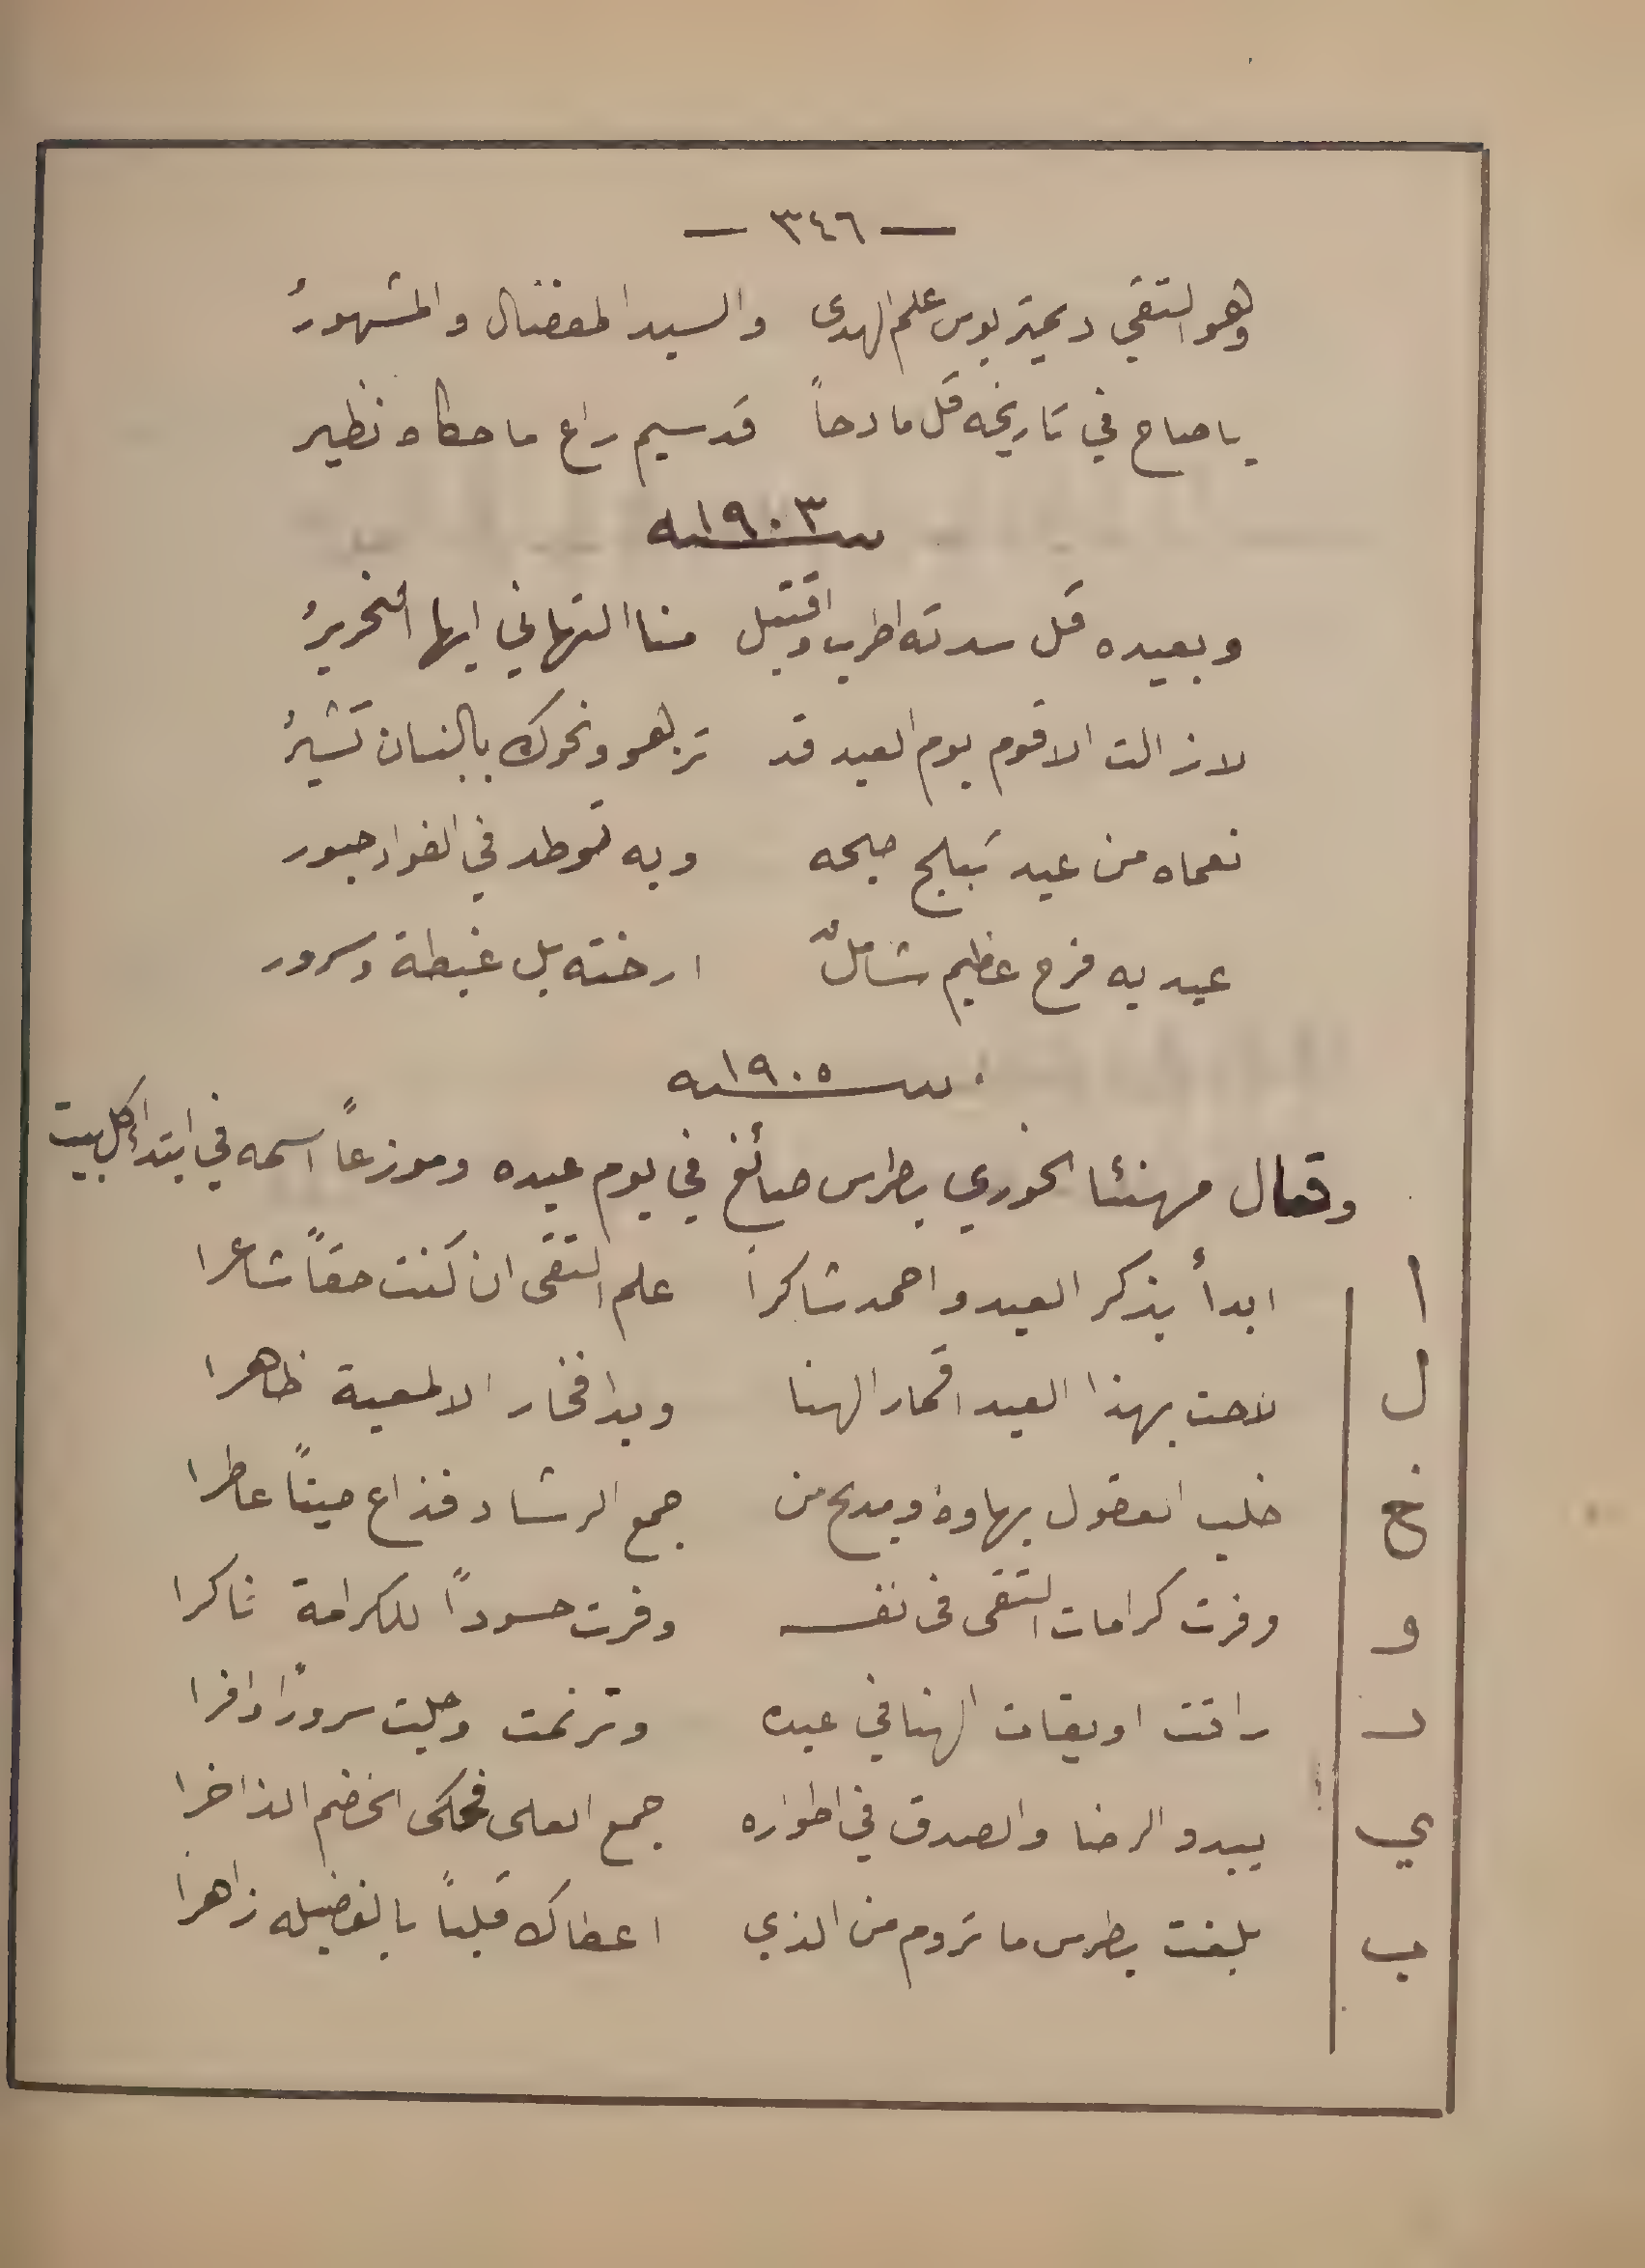 — ٣٤٦ —
وهو التقي ديميتريوس علم الهدى والسيد المفضال والمشهورُ
يا صاح في تاريخه قل مادحاً قد سيم راع ما حكاه نظير
سنة ١٩٠٣
وبعيده قل سدته اطرب واقتبل منا التهاني ايها النحريرُ
لا زالت الاقوم يوم العيد قد تزهو ونحوك بالبنان تشيرُ
نعماه من عيد تبلج صبحه وبه توطد في الفواد حبور
عيد به فرح عظيم شاملٌ ارخته بل غبطة وسرور
سنة ١٩٠٥
وقال مهنئا الخوري بطرس صائغ في يوم عيده وموزعاً اسمه في ابتداء كل بيت
ا ابدأ بذكر العيد واحمد شاكرا علم التقى ان كنت حقاً شاعرا
ل لاحت بهذا العيد اقمار الهنا وبدا فخار الالمعية ظاهرا
خ خلب العقول بهاوه وبمدح من جمع الرشاد فذاع صيتاً عاطرا
و وفرت كرامات التقى في نفسه وفرت حسوداً للكرامة ناكرا
ر راقت اويقات الهنا في عيده وترنمت وجلبت سروراً وافرا
ي يبدو الرضا والصدق في اطواره جمع العلى فحكى الخضم الذاخرا
ب بلغت بطرس ما تروم من الذي اعطاك قلباً بالفضيله زاهرا